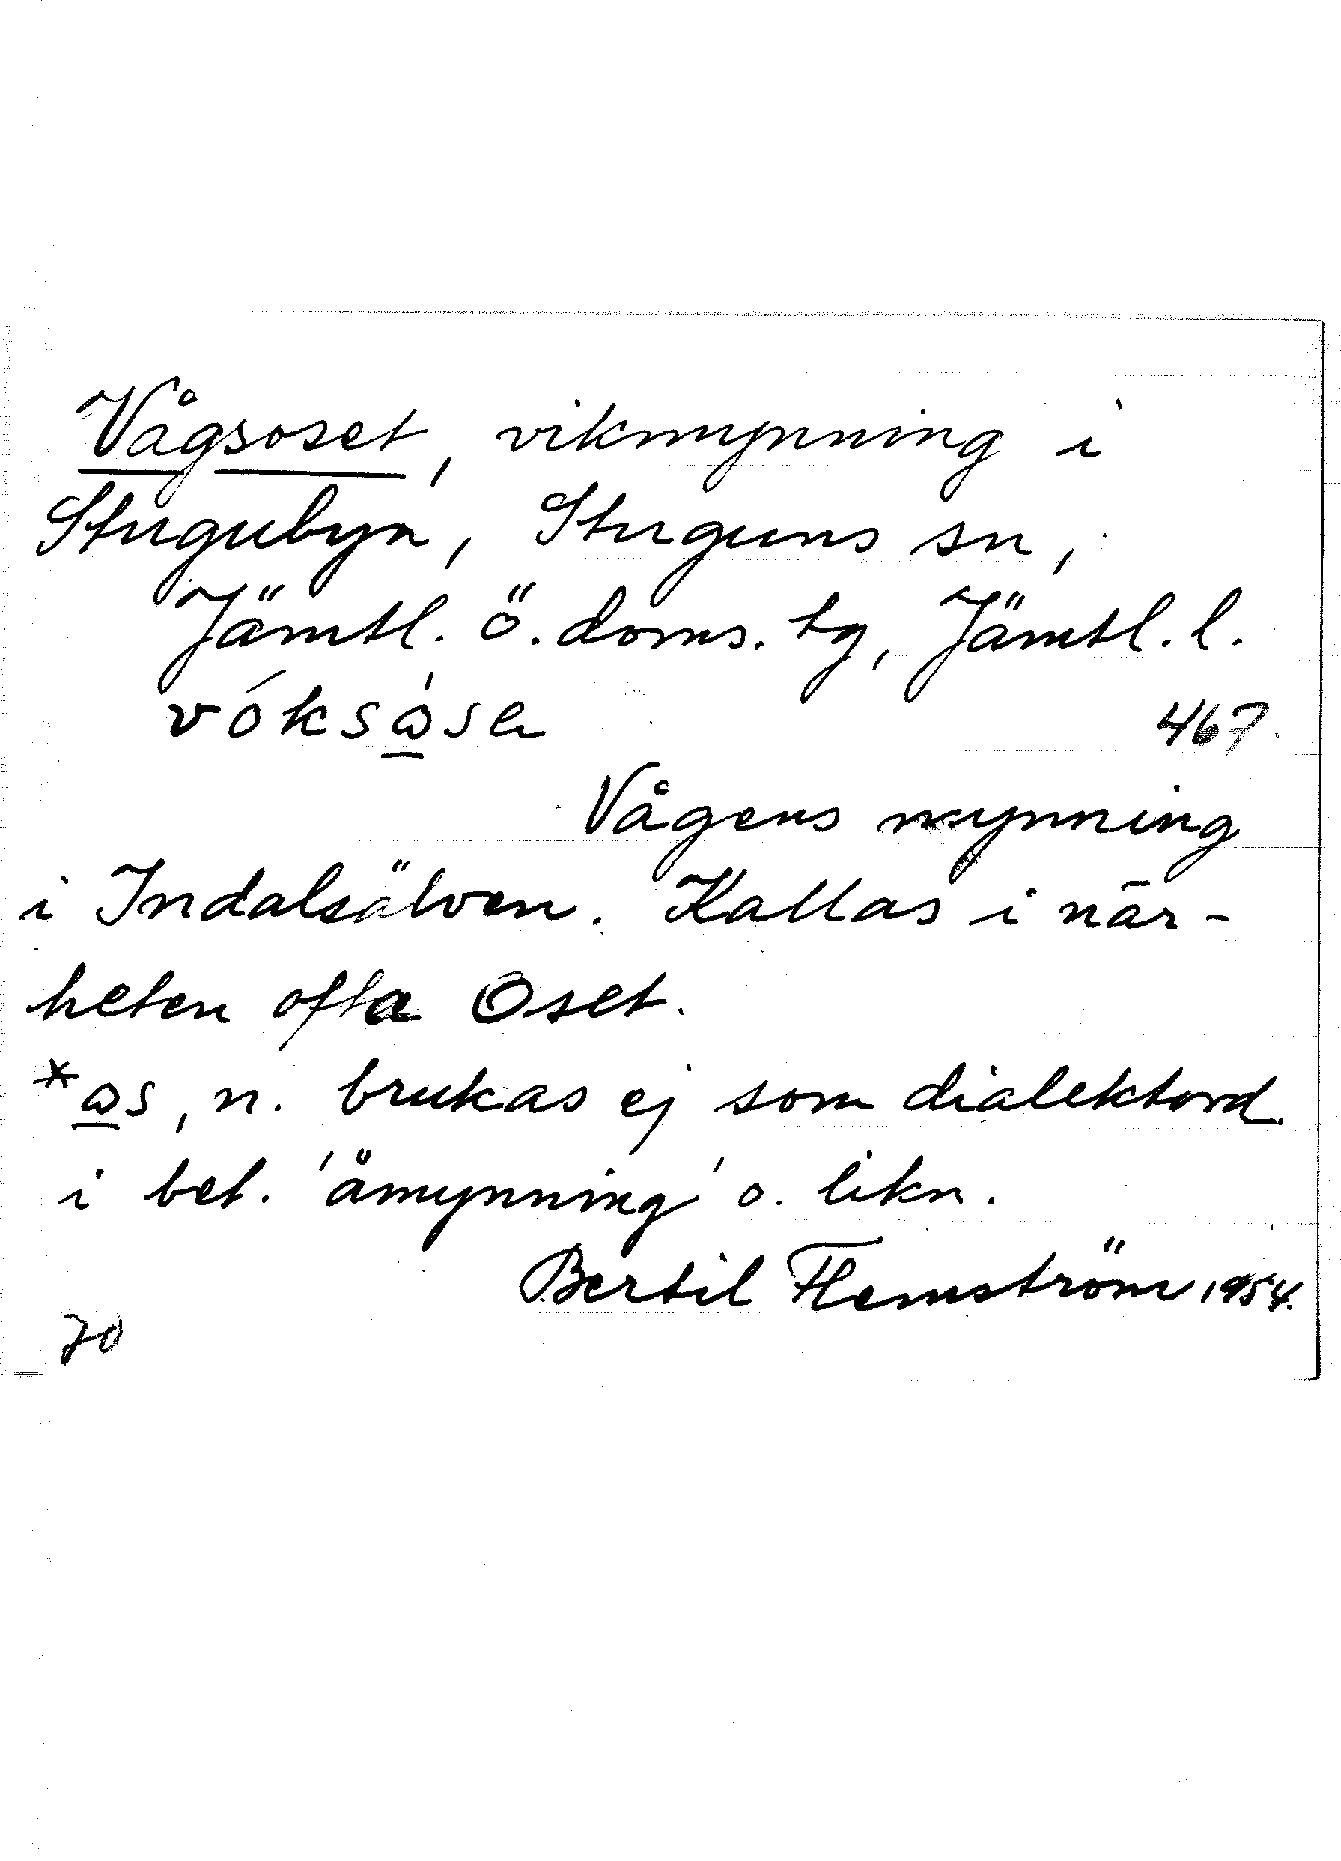 Vågsoset, vikmynning i
Stugubyn, Stuguns sn,
Jämtl. ö. doms. tg, Jämtl. l.
vóksὼ̲sɐ 467
Vågens mynning
i Indalsälven. Kallas i när-
heten ofta Oset.
*ω̲s, n. brukas ej som dialektord
i bet. 'åmynning' o. likn.
Bertil Flemström 1954.
70